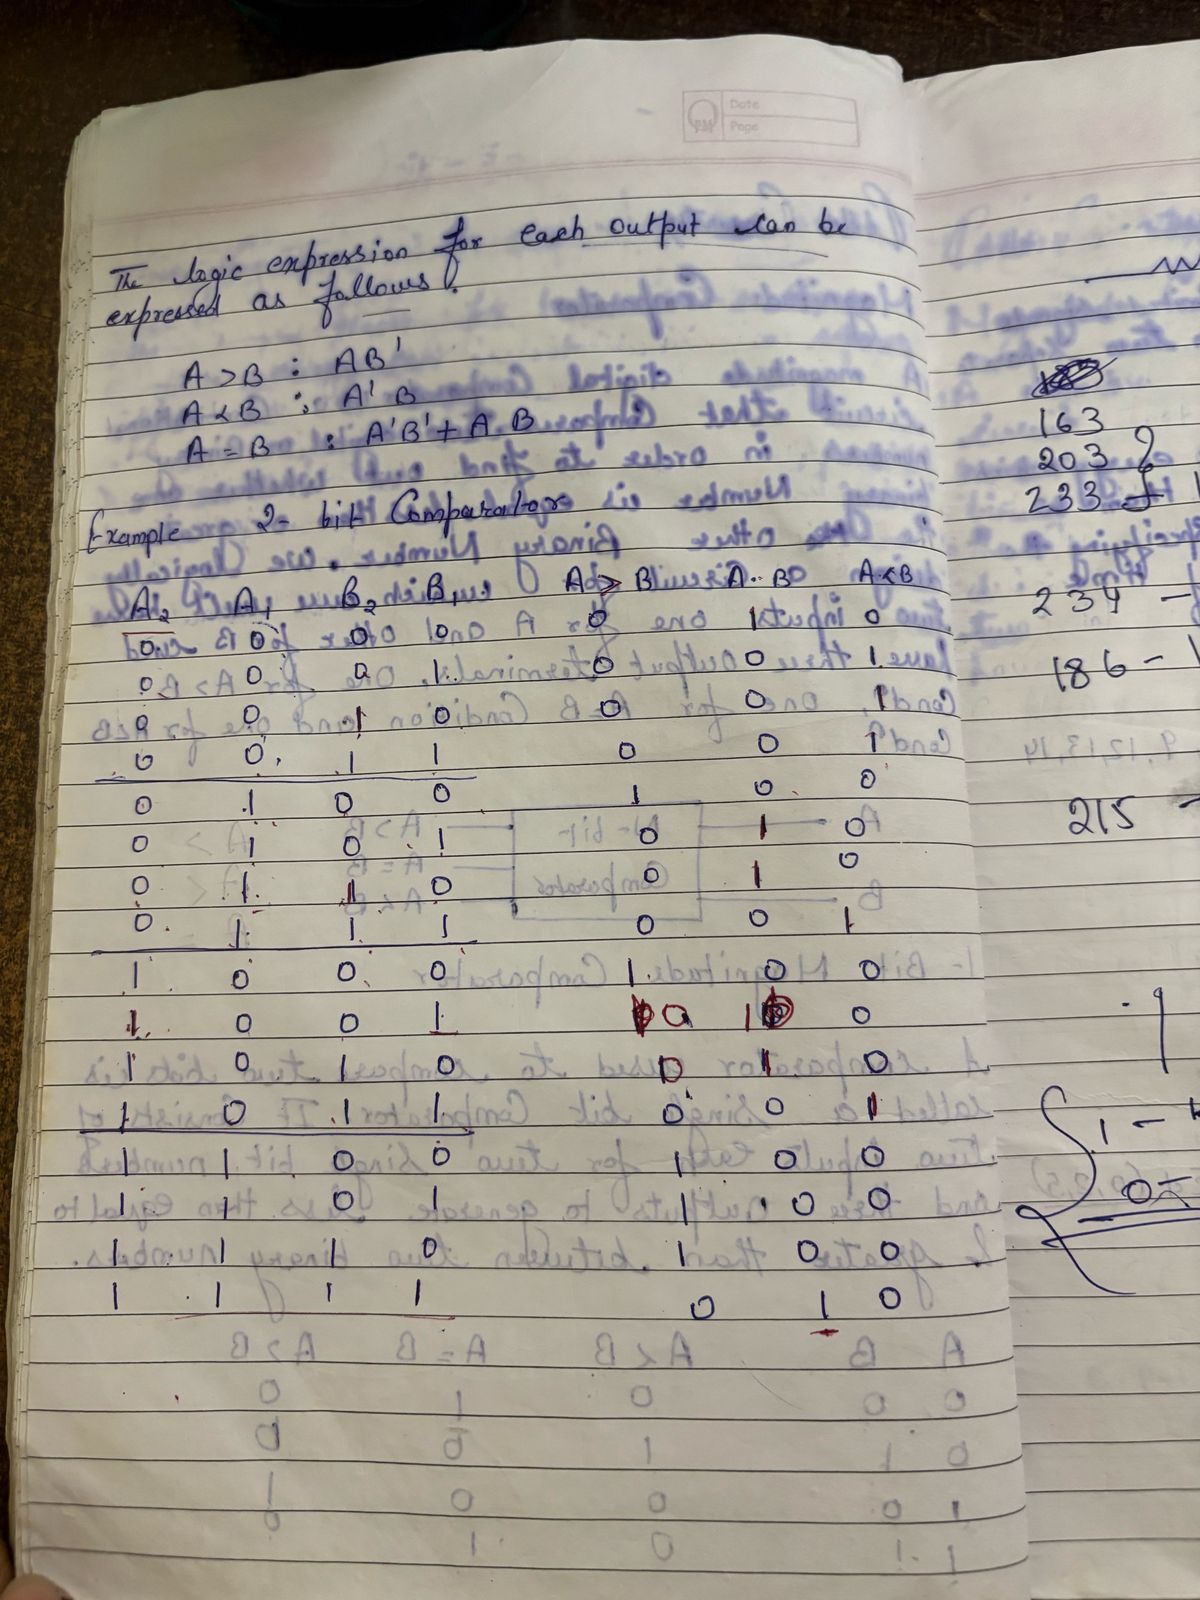 Date
Page
The logic expression for each output can be
expressed as follows.
A > B : AB'
A < B : A'B
A = B : A'B' + A B
Example 2-bit Comparator
A2 A1 B2 B1 A > B A = B A < B
0 0 0 0 0 1 0
0 0 0 1 0 0 1
0 0 1 0 0 0 1
0 0 1 1 0 0 1
0 1 0 0 1 0 0
0 1 0 1 0 1 0
0 1 1 0 0 1 0
0 1 1 1 0 0 1
1 0 0 0 1 0 0
1 0 0 1 0 1 0
1 0 1 0 0 1 0
1 0 1 1 0 0 1
1 1 0 0 1 0 0
1 1 0 1 1 0 0
1 1 1 0 1 0 0
1 1 1 1 0 1 0
163
203
233
234 -
186 -
215 -
1 -
0 -